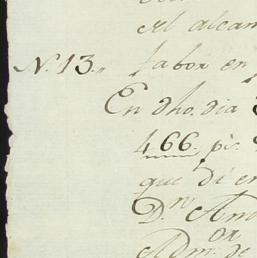 Al alcan
N. 13.. labor en
En dho. dia
466. ps.
que di en
D.n Anto
Adm.or de